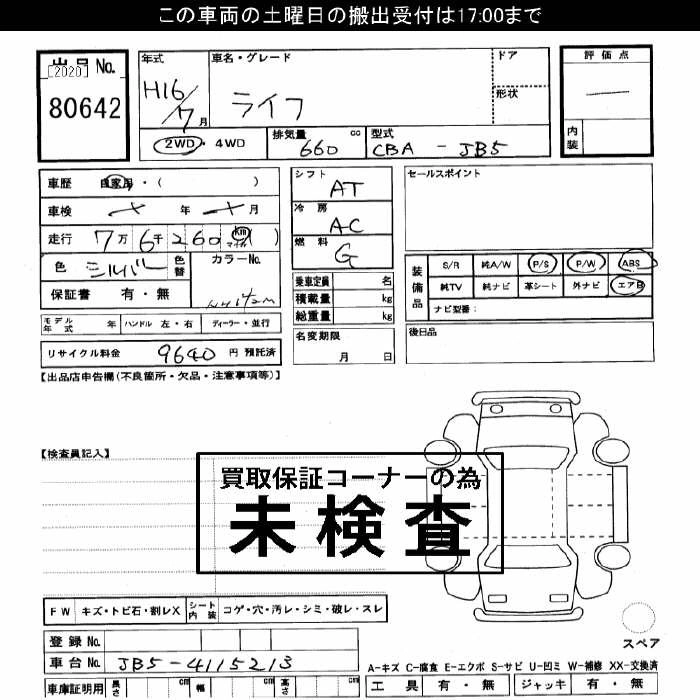 この車両の土曜日の搬出受付は17:00まで
出品No.
[2020]
80642
年式 H16/7月
車名・グレード ライフ
ドア
形状
2WD・4WD
排気量 660 cc
型式 CBA - JB5
評価点
内装
車歴 自家用・( )
車検 年 月
走行 7万6千260 km マイル ( )
色 シルバー 色替
カラーNo.
保証書 有・無
モデル年式 年 ハンドル 左・右 ディーラー・並行
リサイクル料金 9640 円 預託済
シフト AT
冷房 AC
燃料 G
乗車定員 名
積載量 kg
総重量 kg
名変期限
月 日
セールスポイント
装備品
S/R 純A/W P/S P/W ABS
純TV 純ナビ 革シート 外ナビ エアB
ナビ型番:
後日品
【出品店申告欄(不良箇所・欠品・注意事項等)】
【検査員記入】
買取保証コーナーの為
未検査
FW キズ・トビ石・割レX シート内装 コゲ・穴・汚レ・シミ・破レ・スレ
登録No.
車台No. JB5-4115213
車庫証明用 長さ cm 幅 cm 高さ cm
スペア
A-キズ C-腐食 E-エクボ S-サビ U-凹ミ W-補修 XX-交換済
工具 有・無 ジャッキ 有・無